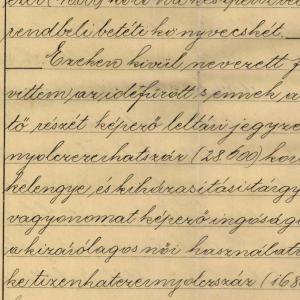 rendbeli betéti könyvecshét.
Ezeken kivül nevezett f
vittem az idefüzött s ennek a
tő részét képező leltári jegyze
nyolczezerhatszáz (28600) kor
kelengye, és kiházasitási tárgy
vagyonomat képező ingóság
a kizárólagos női használat
kétizenhatezernyolczszáz (168